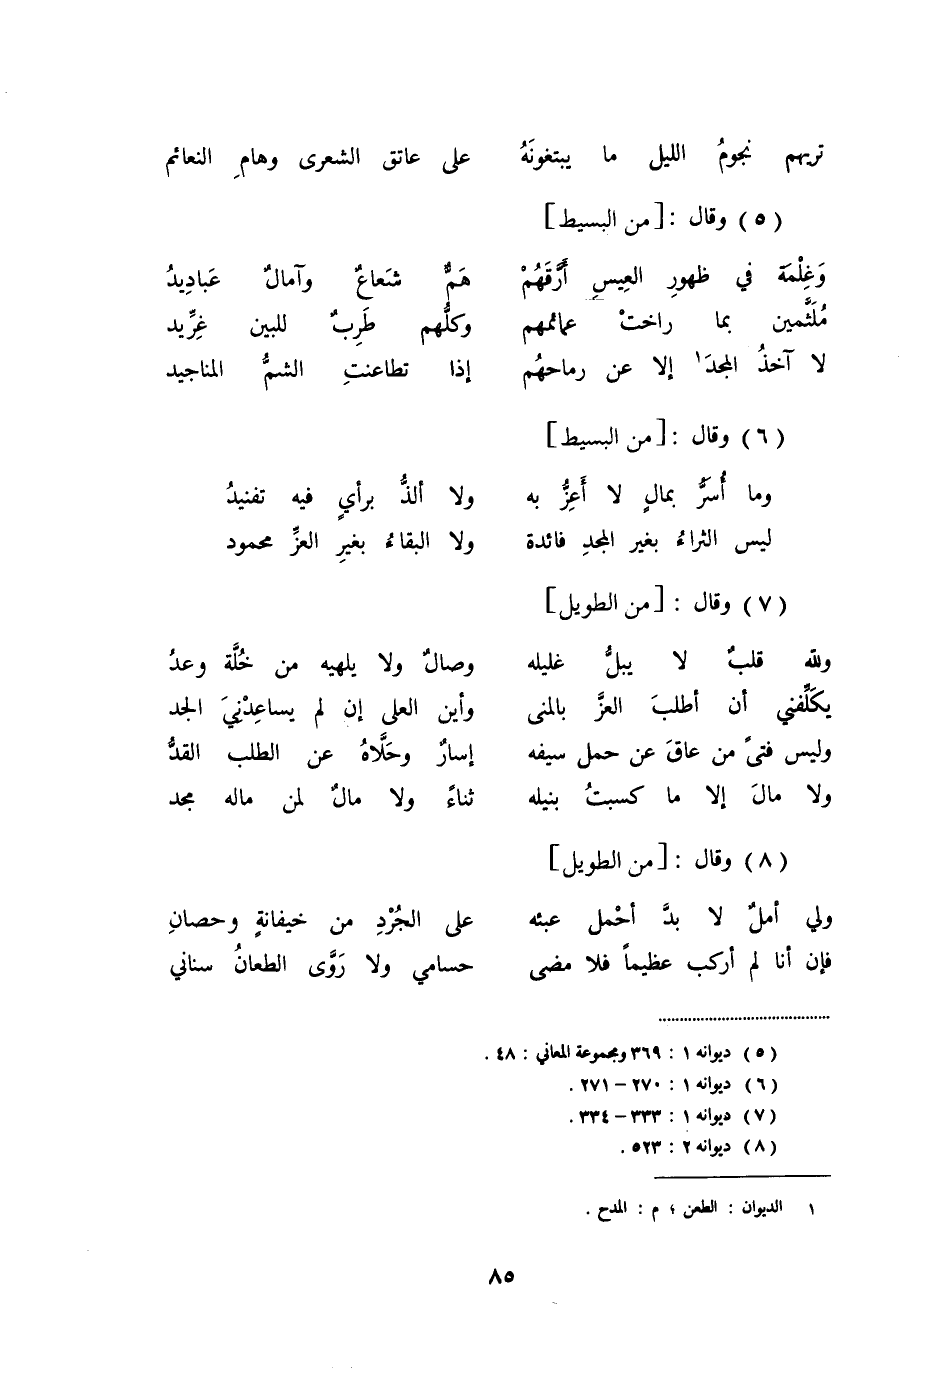 تريهم نجومُ الليل ما يبتغونَهُ على عاتق الشعرى وهامِ النعائم
(٥) وقال : [من البسيط]
وَغِلْمَة في ظهورِ العِيسِ أَرَّقَهُمْ هَمٌّ شَعاعٌ وآمالٌ عَبادِيدُ
مُلَثَّمين بما راختْ عمائمهم وكلُّهم طَرِبٌ للبين غِرِّيد
لا آخذُ المجدَ١ إلا عن رماحهُم إذا تطاعنتِ الشمُّ المناجيد
(٦) وقال : [من البسيط]
وما أُسَرُّ بمالٍ لا أَعِزُّ به ولا ألذُّ برأيٍ فيه تفنيدُ
ليس الثراءُ بغير المجدِ فائدة ولا البقاءُ بغيرِ العزِّ محمود
(٧) وقال : [من الطويل]
ولله قلبٌ لا يبلُّ غليله وصالٌ ولا يلهيه من خُلَّة وعدُ
يكَلِّفني أن أطلبَ العزَّ بالمنى وأين العلى إن لم يساعِدْنِيَ الجد
وليس فتىً من عاقَ عن حمل سيفه إسارٌ وحَلَّاهُ عن الطلب القدُّ
ولا مالَ إلا ما كسبتُ بنيله ثناءً ولا مالٌ لمن ماله مجد
(٨) وقال : [من الطويل]
ولي أملٌ لا بدَّ أحْمل عبئه على الجُرْدِ من خيفانةٍ وحصانِ
فإن أنا لم أركب عظيماً فلا مضى حسامي ولا رَوَّى الطعانُ سناني
(٥) ديوانه ١ : ٣٦٩ ومجموعة المعاني : ٤٨ .
(٦) ديوانه ١ : ٢٧٠ – ٢٧١ .
(٧) ديوانه ١ : ٣٣٣ – ٣٣٤ .
(٨) ديوانه ٢ : ٥٢٣ .
١ الديوان : الطعن ؛ م : المدح .
٨٥